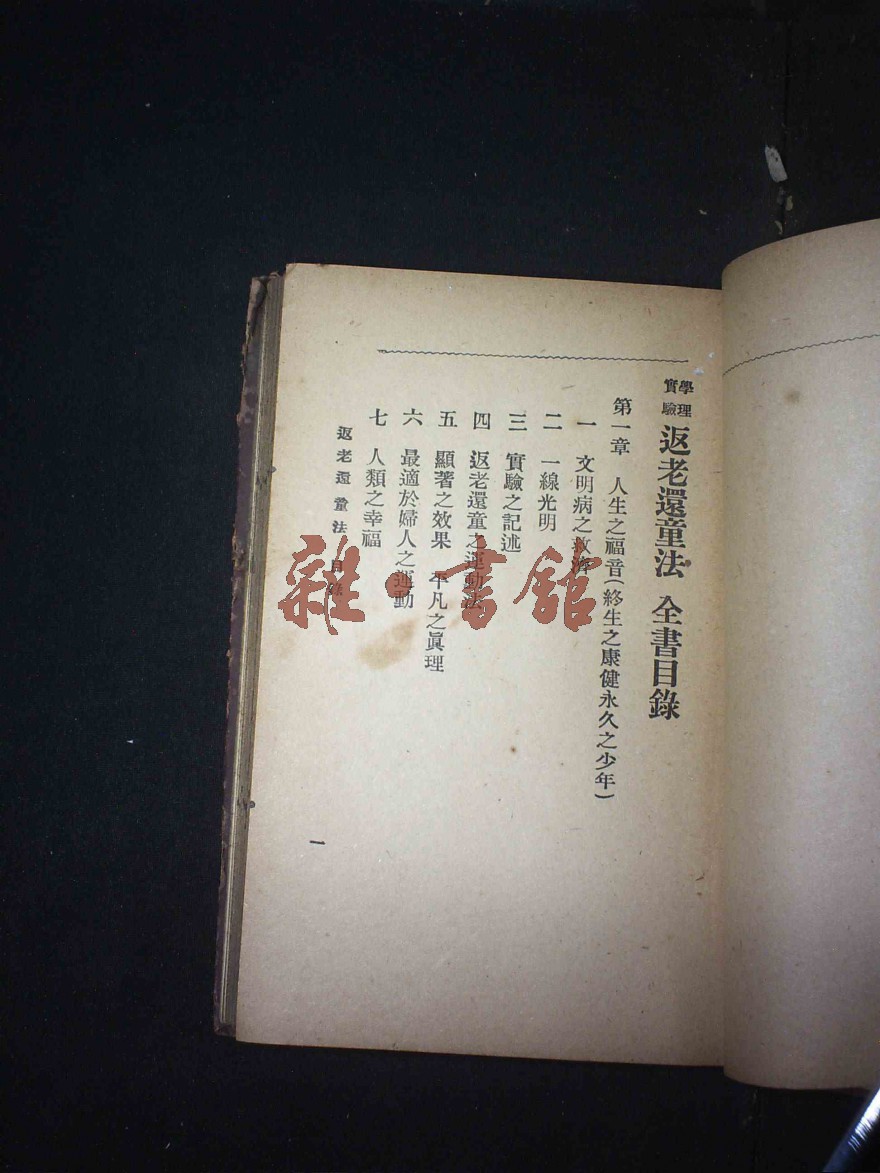 學理實驗 返老還童法 全書目錄
第一章 人生之福音(終生之康健永久之少年)
一 文明病之救濟
二 一線光明
三 實驗之記述
四 返老還童之運動法
五 顯著之效果 平凡之眞理
六 最適於婦人之運動
七 人類之幸福
返老還童法 目錄
一
雜·書館